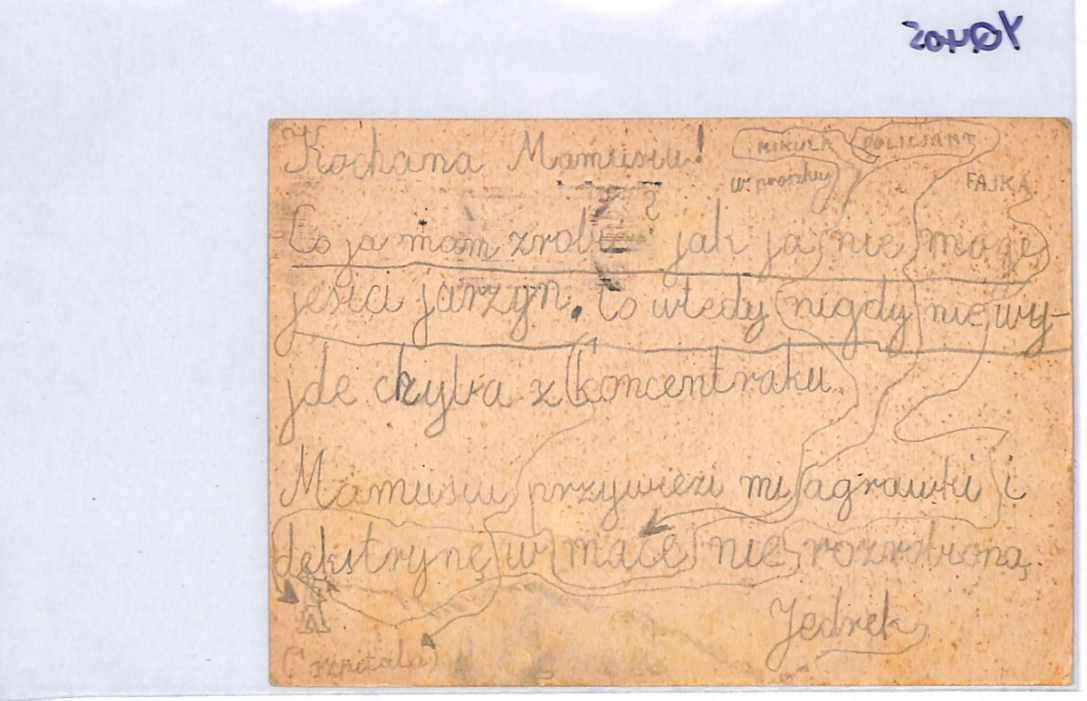 Kochana Mamusiu!
MIKUŁA POLICJANT
w proszku
FAJKA
Co ja mam zrobić? jak ja nie mogę
jeści jarzyn. to wtedy nigdy nie wy-
jde chyba z koncentraku.
Mamusiu przywiezi mi agrawki i
dekstrynę w mące nie rozrobioną.
Jędrek
(szpitala)